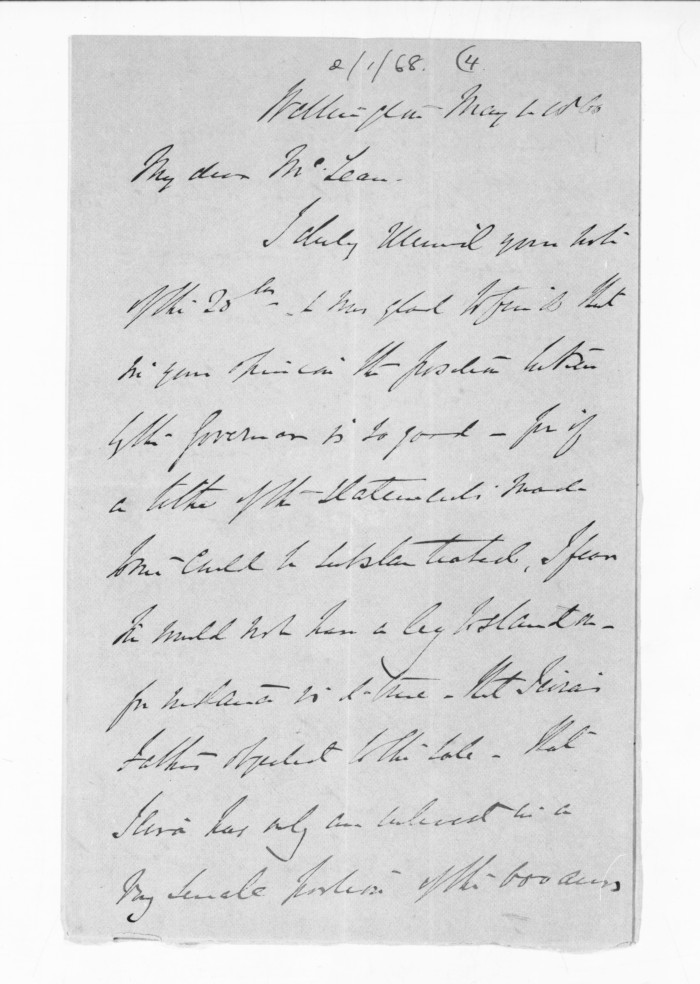 2/1/68. (4
Wellington May 1 1860
My dear McLean.
I duly received your note
of the 20th & was glad to find that
in your opinion the position taken
by the Governor is so good - for if
a tithe of the statements made
to me could be substantiated, I fear
he would not have a leg to stand on -
for instance is it true - that Teira's
Father objected to the sale - that
Teira has only an interest in a
very small portion of the 600 acres